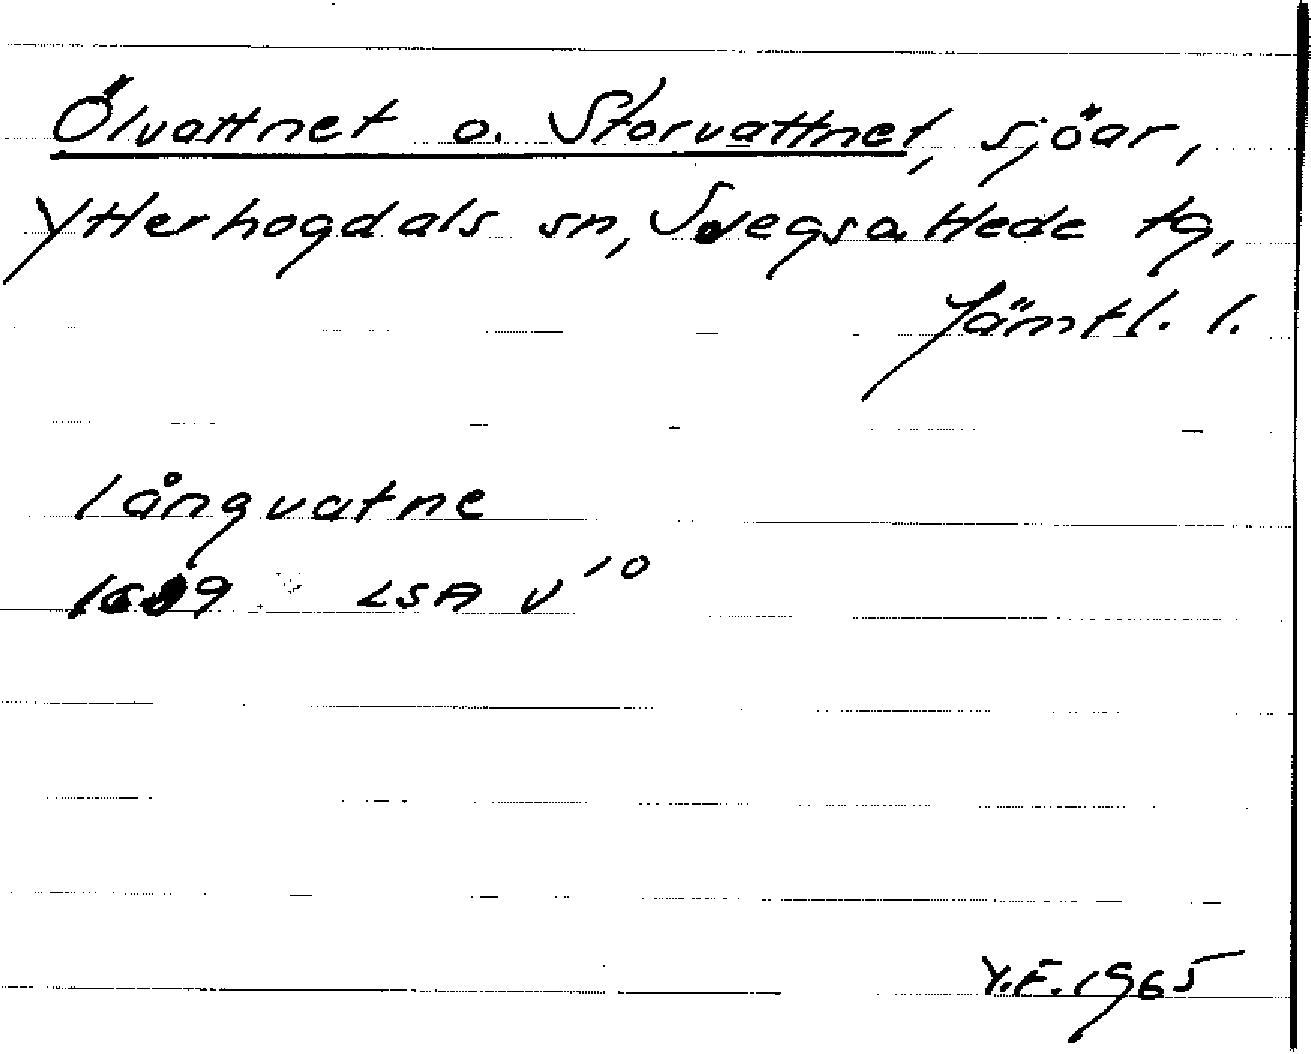 Ölvattnet o. Storvattnet, sjöar,
Ytterhogdals sn, Svegs o. Hede tg,
Jämtl. l.
långvatne
LSA V'º
Y.F. 1965